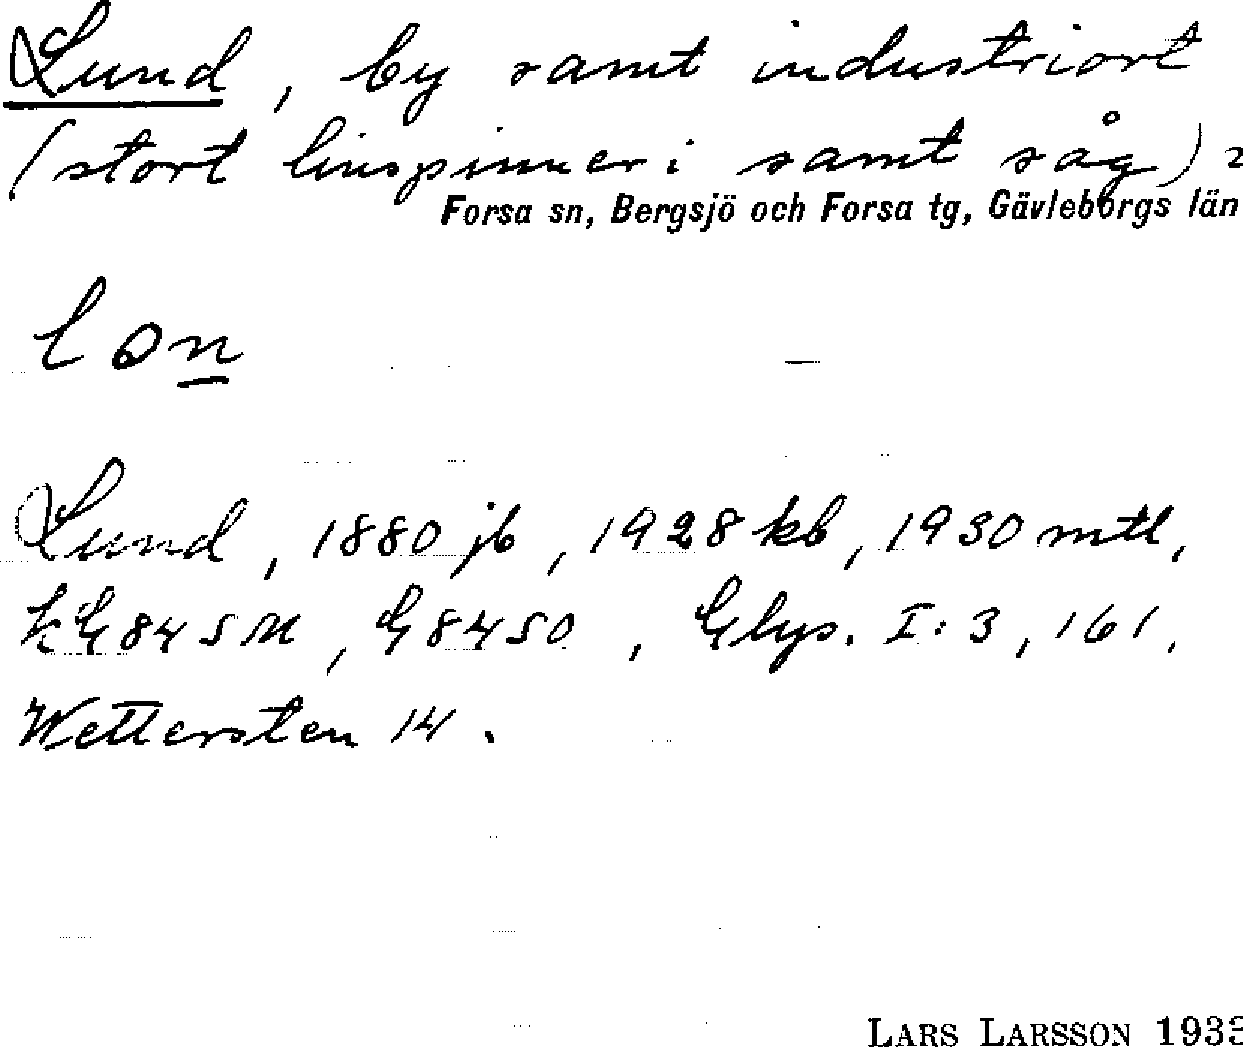 Lund, by samt industriort
(stort linspinneri samt såg)
Forsa sn, Bergsjö och Forsa tg, Gävleborgs län
lon
Lund, 1880 jb, 1928 kb, 1930 mtl,
kG 845 M, G 8450, Glys. I:3, 161,
Wettersten 14.
LARS LARSSON 193